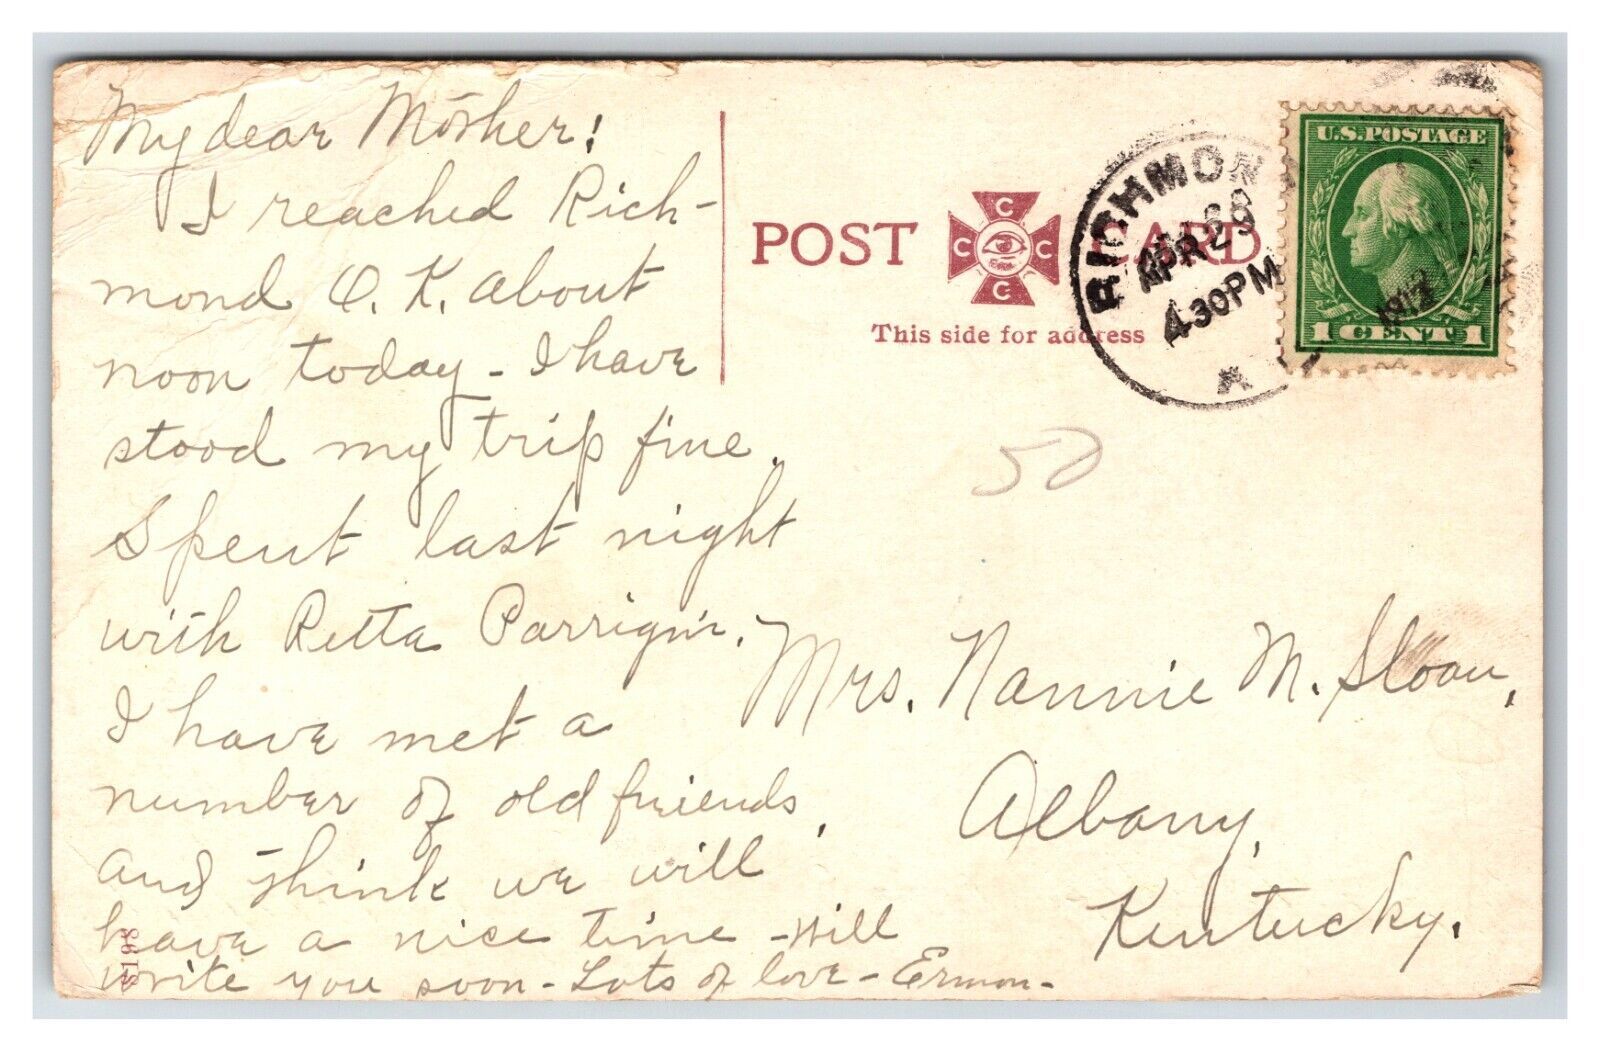 My dear Mother!
I reached Rich-
mond O.K. about
noon today - I have
stood my trip fine.
Spent last night
with Retta Parrigin.
I have met a
number of old friends,
and think we will
have a nice time - Will
write you soon - Lots of love - Ermon -
S198
POST CARD
C C C C
This side for address
RICHMON
APR 29
4 30 PM
U.S. POSTAGE
1 CENT 1
50
Mrs. Nannie M. Sloan,
Albany,
Kentucky.